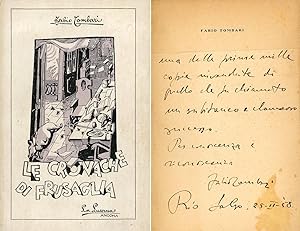 Fabio Tombari
LE CRONACHE
DI FRUSAGLIA
La Lucerna
ANCONA
FABIO TOMBARI
una delle prime mille
copie invendite di
quello che fu chiamato
un subitaneo e clamoroso
successo.
Per conoscenza e
riconoscenza
Fabio Tombari
Rio Salso, 25-II-58